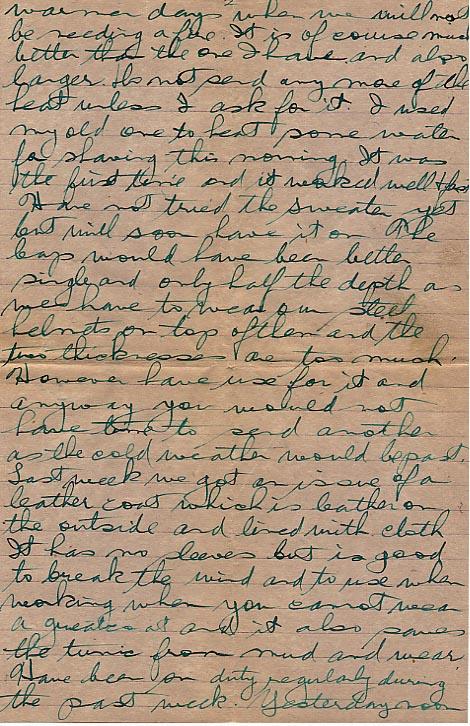 2
warmer days when we will not
be needing a fire. It is of course much
better than the one I have and also
larger. Do not send any more of the
heat unless I ask for it. I used
my old one to heat some water
for shaving this morning. It was
the first time and it worked well & fast
Have not tried the sweater yet
but will soon have it on. The
cap would have been better
single and only half the depth as
we have to wear our steel
helmets on top of them and the
two thicknesses are too much.
However have use for it and
anyway you would not
have time to send another
as the cold weather would be past.
Last week we got an issue of a
leather coat which is leather on
the outside and lined with cloth
It has no sleeves but is good
to break the wind and to use when
working when you cannot wear
a greatcoat and it also saves
the tunic from mud and wear.
Have been on duty regularly during
the past week. Yesterday noon